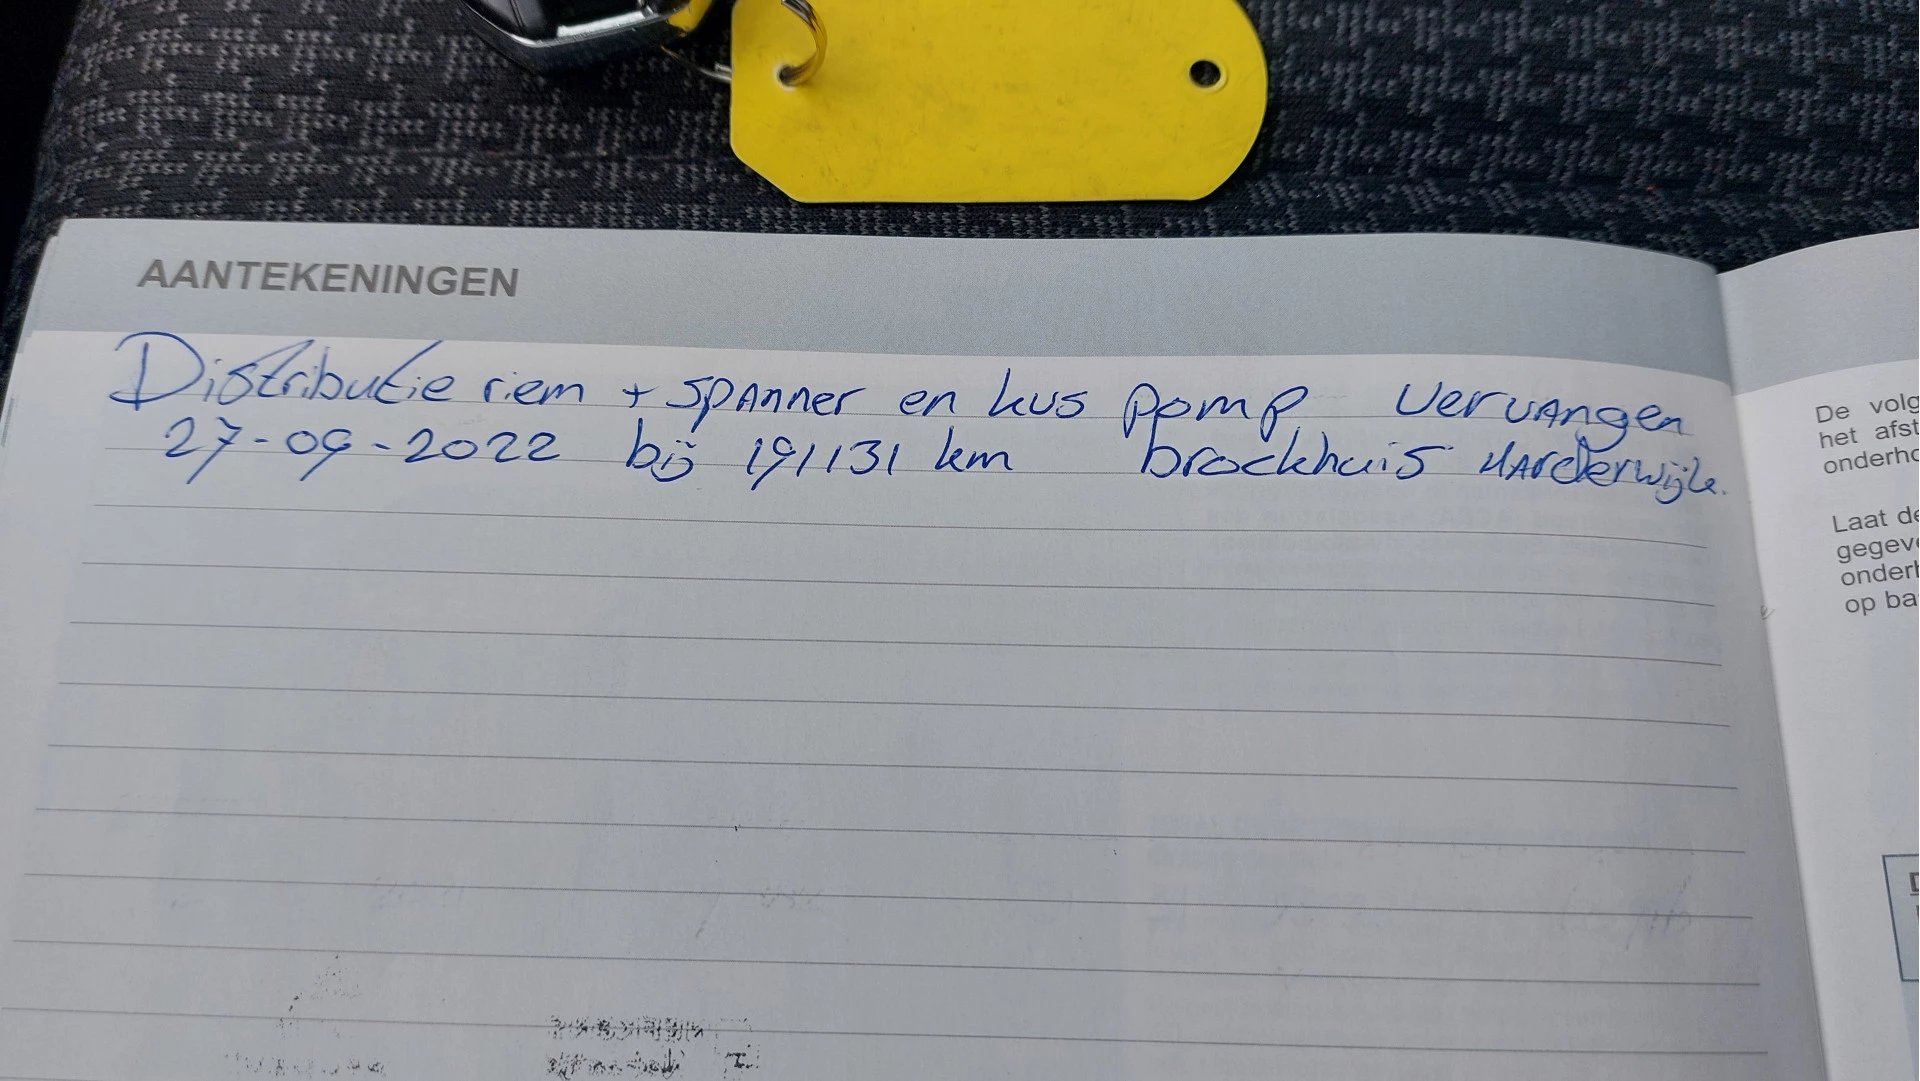 AANTEKENINGEN
Distributie riem + spanner en kus pomp vervangen
27-09-2022 bij 191131 km brockhuis Harderwijk.
De volg
het afst
onderho
Laat de
gegeve
onderh
op ba